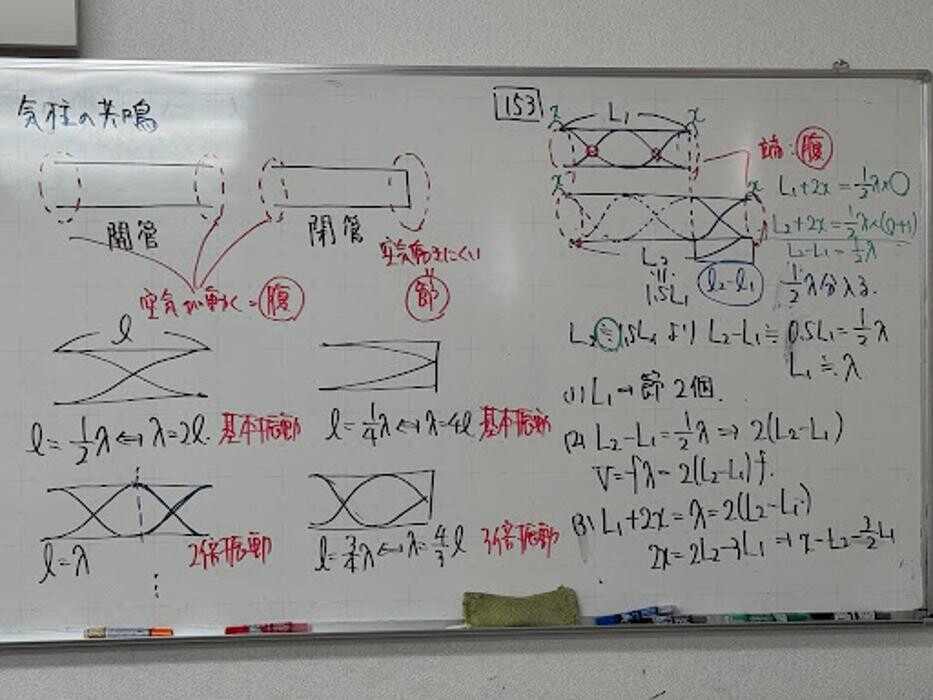 気柱の共鳴
開管
閉管
空気が動く=腹
空気動きにくい
節
l
l=1/2λ⇔λ=2l. 基本振動
l=1/4λ⇔λ=4l 基本振動
l=λ 2倍振動
l=3/4λ⇔λ=4/3l 3倍振動
153
x L₁ x
端:腹
x x
L₂
1.5L₁
l₂-l₁
L₁+2x=1/2λ×○
L₂+2x=1/2λ×(○+1)
L₂-L₁=1/2λ
1/2λ分入る.
L₂≒1.5L₁より L₂-L₁≒0.5L₁=1/2λ
L₁≒λ
(1) L₁→節2個.
(2) L₂-L₁=1/2λ⇒2(L₂-L₁)
V=fλ=2(L₂-L₁)f.
(3) L₁+2x=λ=2(L₂-L₁)
2x=2L₂-3L₁→x=L₂-3/2L₁